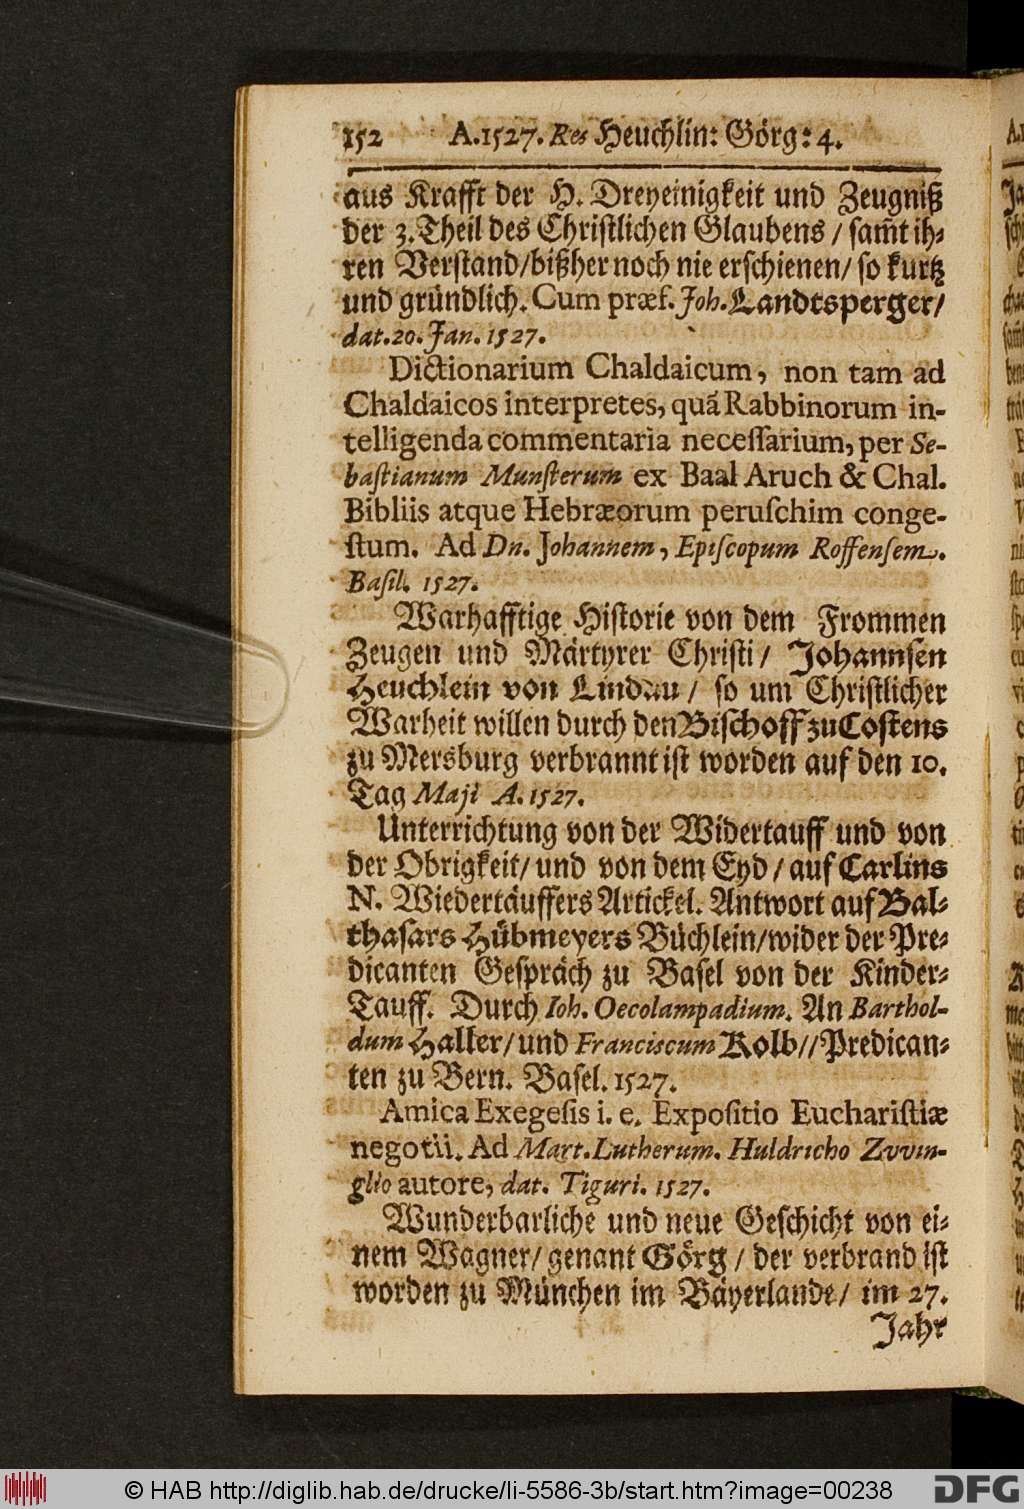 152 A.1527. Res Heuchlin: Görg: 4.
aus Krafft der H. Dreyeinigkeit und Zeugniß
der 3. Theil des Christlichen Glaubens / sam̃t ih-
ren Verstand / bißher noch nie erschienen / so kurtz
und gründlich. Cum præf. Joh. Landtsperger /
dat. 20. Jan. 1527.
Dictionarium Chaldaicum, non tam ad
Chaldaicos interpretes, quã Rabbinorum in-
telligenda commentaria necessarium, per Se-
bastianum Munsterum ex Baal Aruch & Chal.
Bibliis atque Hebræorum peruschim conge-
stum. Ad Dn. Johannem, Episcopum Roffensem.
Basil. 1527.
Warhafftige Historie von dem Frommen
Zeugen und Märtyrer Christi / Johannsen
Heuchlein von Lindau / so um Christlicher
Warheit willen durch den Bischoff zu Costens
zu Mersburg verbrannt ist worden auf den 10.
Tag Maji A. 1527.
Unterrichtung von der Widertauff und von
der Obrigkeit / und von dem Eyd / auf Carlins
N. Wiedertäuffers Artickel. Antwort auf Bal-
thasars Hübmeyers Büchlein / wider der Pre-
dicanten Gespräch zu Basel von der Kinder-
Tauff. Durch Ioh. Oecolampadium. An Barthol-
dum Haller / und Franciscum Kolb // Predican-
ten zu Bern. Basel. 1527.
Amica Exegesis i. e. Expositio Eucharistiæ
negotii. Ad Mart. Lutherum. Huldricho Zvvin-
glio autore, dat. Tiguri. 1527.
Wunderbarliche und neue Geschicht von ei-
nem Wagner / genant Görg / der verbrand ist
worden zu München im Bäyerlande / im 27.
Jahr
© HAB http://diglib.hab.de/drucke/li-5586-3b/start.htm?image=00238
DFG